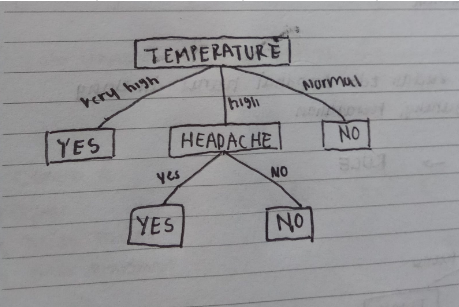 TEMPERATURE
very high
high
Normal
YES
HEADACHE
NO
yes
NO
YES
NO